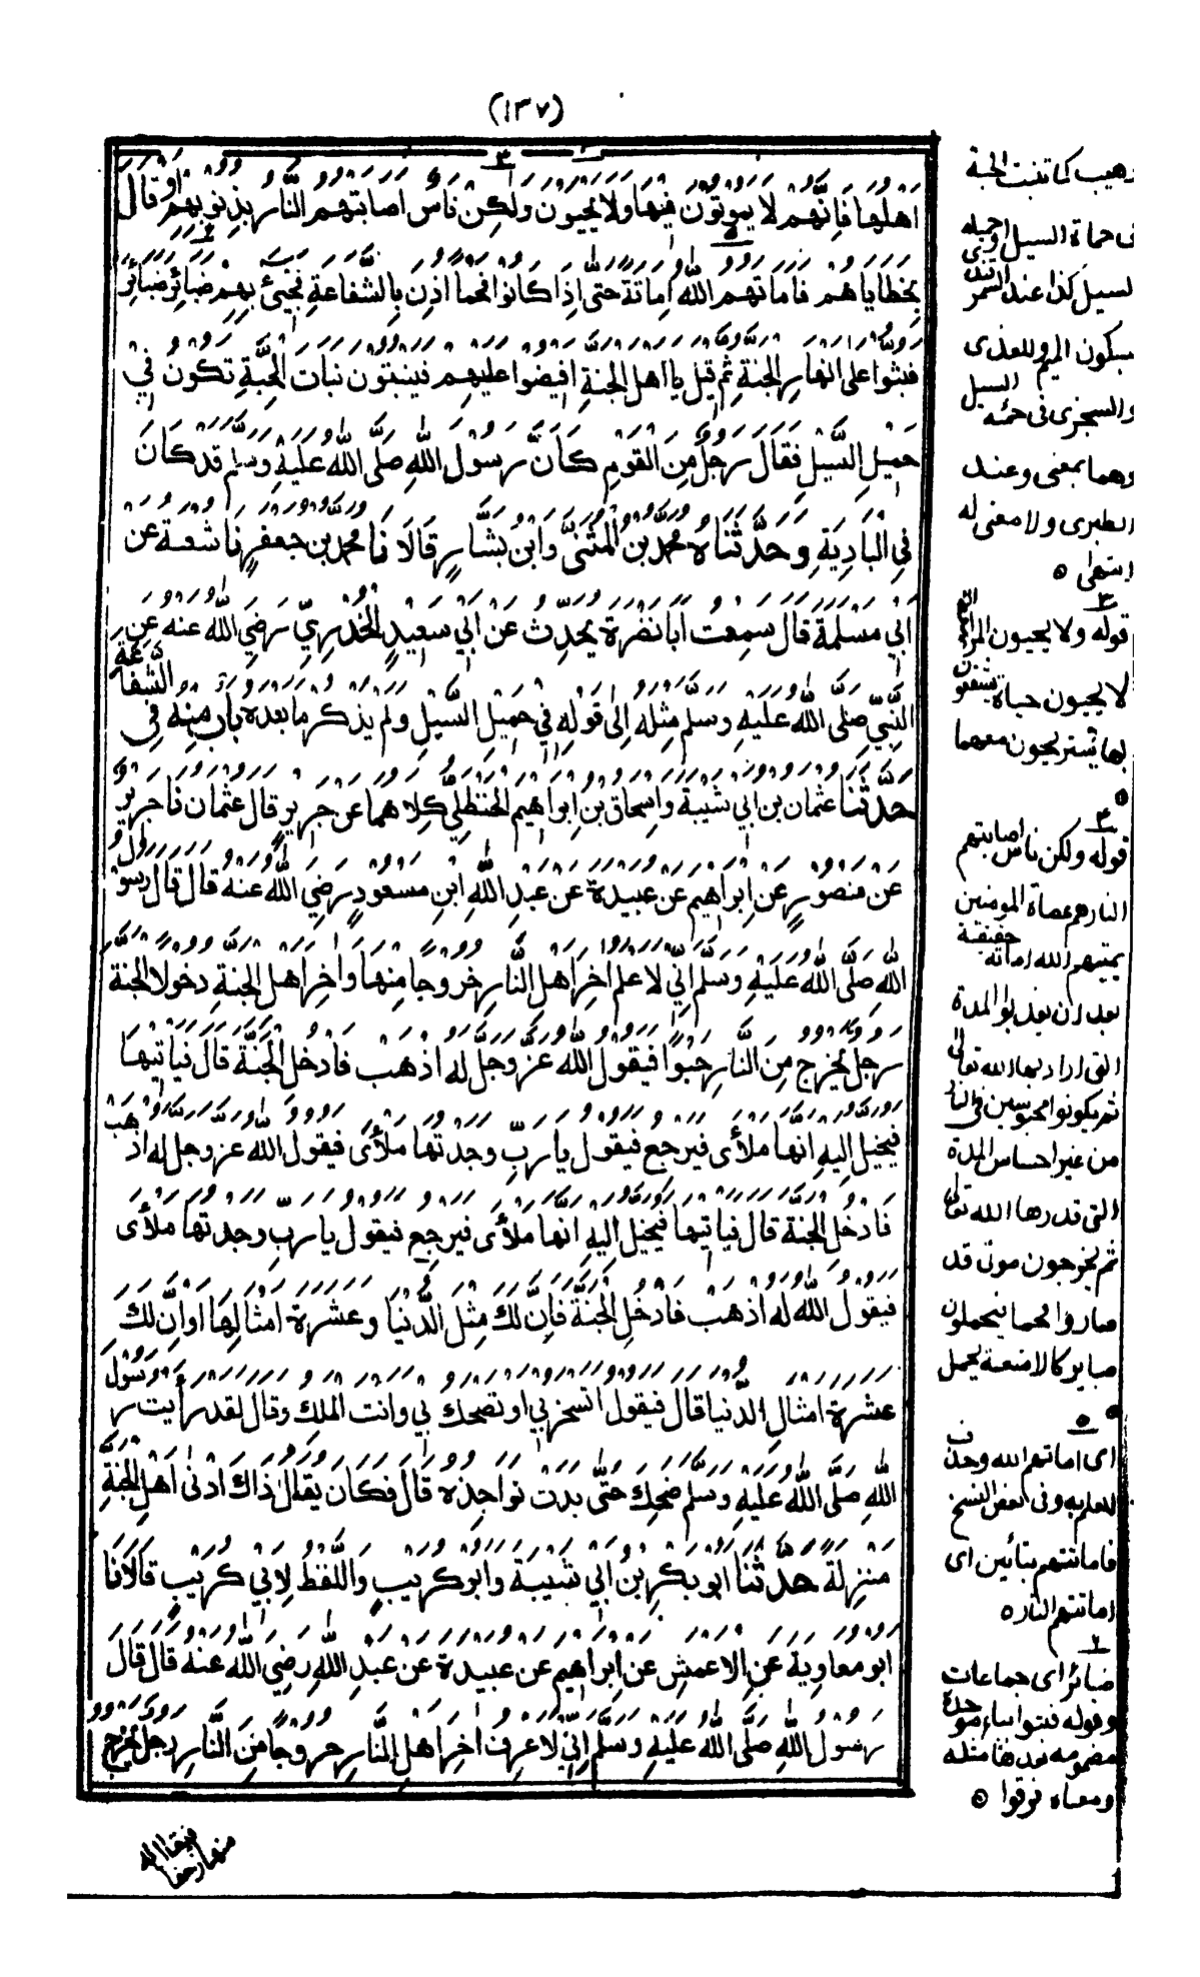 (١٣٧)
اهلها فانهم لا يموتون فيها ولا يحيون ولكن ناس اصابتهم النار بذنوبهم او قال
بخطاياهم فاماتهم الله اماتة حتى اذا كانوا فحما اذن بالشفاعة فجيئ بهم ضبائر ضبائر
فبثوا على انهار الجنة ثم قيل يا اهل الجنة افيضوا عليهم فينبتون نبات الحبة تكون في
حميل السيل فقال رجل من القوم كان رسول الله صلى الله عليه وسلم قد كان
في البادية وحدثناه محمد بن المثنى وابن بشار قالا نا محمد بن جعفر نا شعبة عن
ابي مسلمة قال سمعت ابا نضرة يحدث عن ابي سعيد الخدري رضي الله عنه عن
النبي صلى الله عليه وسلم مثله الى قوله في حميل السيل ولم يذكر ما بعده باب منه في الشفاعة
حدثنا عثمان بن ابي شيبة واسحاق بن ابراهيم الحنظلي كلاهما عن جرير قال عثمان نا جرير
عن منصور عن ابراهيم عن عبيدة عن عبد الله ابن مسعود رضي الله عنه قال قال رسول
الله صلى الله عليه وسلم اني لاعلم اخر اهل النار خروجا منها واخر اهل الجنة دخولا الجنة
رجل يخرج من النار حبوا فيقول الله عز وجل له اذهب فادخل الجنة قال فياتيها
فيخيل اليه انها ملأى فيرجع فيقول يا رب وجدتها ملأى فيقول الله عز وجل له اذهب
فادخل الجنة قال فياتيها فيخيل اليه انها ملأى فيرجع فيقول يا رب وجدتها ملأى
فيقول الله له اذهب فادخل الجنة فان لك مثل الدنيا وعشرة امثالها او ان لك
عشرة امثال الدنيا قال فيقول اتسخر بي او تضحك بي وانت الملك وقال لقد رأيت رسول
الله صلى الله عليه وسلم ضحك حتى بدت نواجذه قال فكان يقال ذاك ادنى اهل الجنة
منزلة حدثنا ابو بكر بن ابي شيبة وابو كريب واللفظ لابي كريب قالا نا
ابو معاوية عن الاعمش عن ابراهيم عن عبيدة عن عبد الله رضي الله عنه قال قال
رسول الله صلى الله عليه وسلم اني لاعرف اخر اهل النار خروجا من النار رجل يخرج
وهيب كما تنبت الحبة
في حماة السيل او حميلة
السيل كذا عند السمرقندي
بسكون الميم وللعذري
والسجزي في حمئة السيل
وهما بمعنى وعند
الطبري ولا معنى له
انتهى ٥
٣
قوله ولا يحيون المراد
لا يحيون حياة ينتفعون
بها يستريحون معها
٤
قوله ولكن ناس اصابتهم
النار هم عصاة المومنين
يميتهم الله اماتة حقيقية
بعد ان يعذبوا المدة
التي ارادها الله تعالى
ثم يكونوا محبوسين في النار
من غير احساس المدة
التي قدرها الله تعالى
ثم يخرجون موتى قد
صاروا فحما فيحملون
ضباير كالامتعة يحمل
٥
اي اماتهم الله وحذف
للعلم به وفي بعض النسخ
فاماتتهم بتائين اي
اماتتهم النار ٥
٦
ضبائر اي جماعات
وقوله فبثوا بباء موحدة
مضمومة بعدها مثلثة
ومعناه فرقوا ٥
منها زحفا
فيقال له